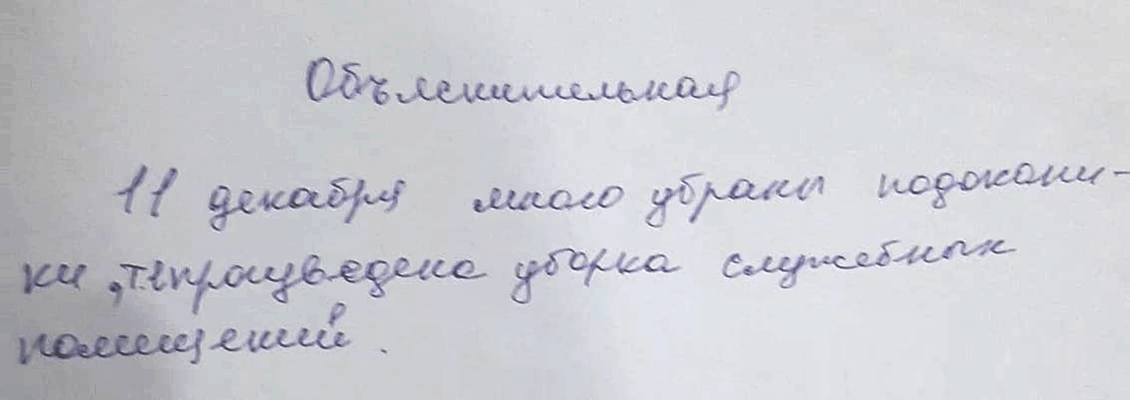 Объяснительная
11 декабря мною убраны подокони-
ки, т.е произведена уборка служебных
помещений.